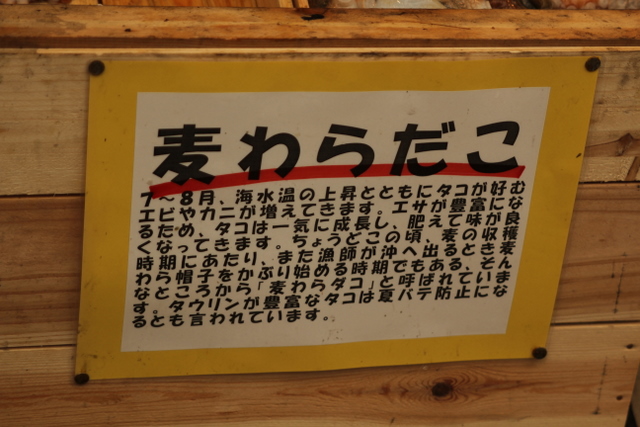 麦わらだこ
7〜8月、海水温の上昇とともにタコが好む
エビやカニが増えてきます。エサが豊富にな
るため、タコは一気に成長し、肥えて味が良
くなってきます。ちょうどこの頃、麦の収穫
時期にあたり、また漁師が沖へ出るとき麦
わら帽子をかぶり始める時期でもある、そん
なところから「麦わらダコ」と呼ばれていま
す。タウリンが豊富なタコは夏バテ防止にな
るとも言われています。